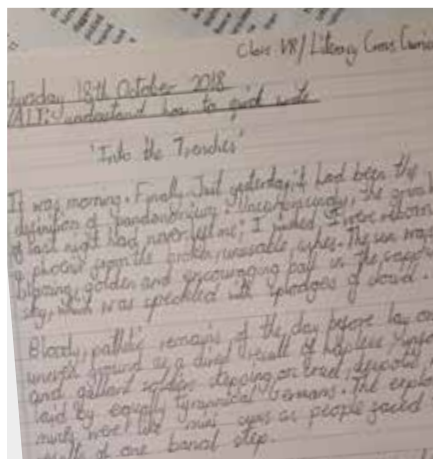 Class V8/ Literacy Cross Curric
Tuesday 18th October 2018
WALT: understand how to quick write
'Into the Trenches'
It was morning. Finally. Just yesterday, it had been the
definition of pandemonium. Unconsciously, the
of last night had never left me; I wished I were reborn
a phoenix from the broken, unusable, ashes. The sun was
blazing, golden and encouraging ball in the
sky, which was speckled with splodges of cloud.
Bloody, pathetic remains of the day before lay on
uneven ground as a direct result of hapless
and gallant soldiers stepping on cruel, despotic
laid by equally tyrannical Germans. The
mines were like mini suns as people faced
results of one banal step.